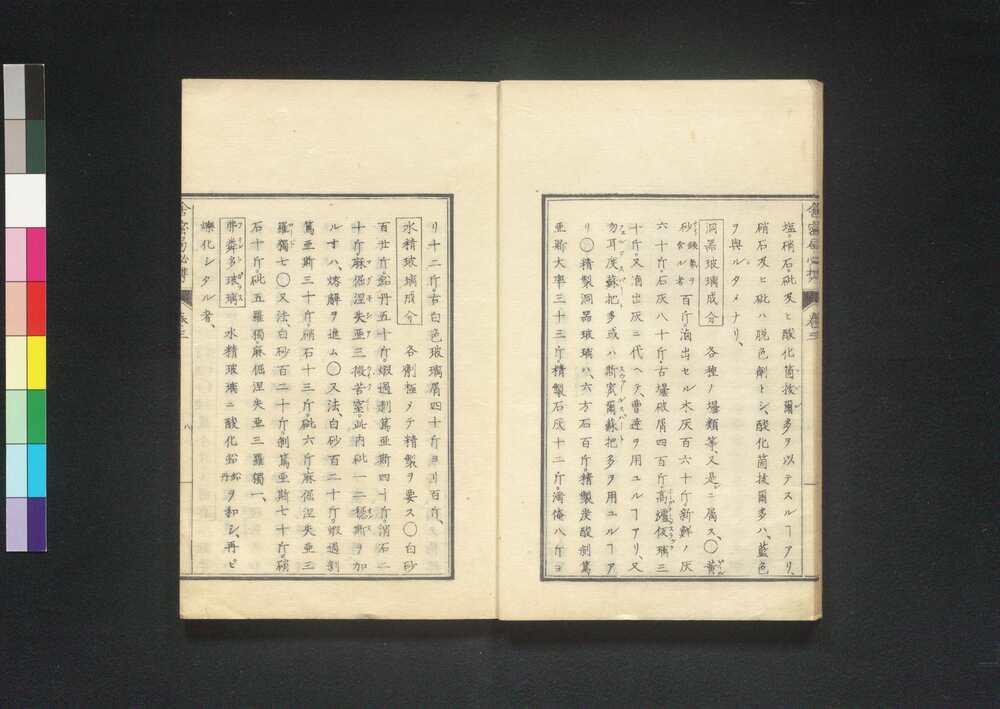 塩。硝石。砒及ヒ酸化箇抜爾多ヲ以テスルヿアリ、
硝石及ヒ砒ハ脱色劑トシ、酸化箇抜爾多ハ、藍色
ヲ與ルタメナリ、
洞器玻璃成分 各種ノ壜類等、又是ニ属ス、〇黄
砂鐵氣ヲ含ル者百斤。滴出セル木灰百六十斤新鮮ノ灰
六十斤。石灰八十斤。古壜破屑四百斤。高爐玻璃三
十斤。又滴出灰ニ代ヘテ、曹達ヲ用ユルヿアリ、又
勿耳度蘇把多或ハ斯蜜爾蘇把多ヲ用ユルヿア
リ〇精製洞器玻璃ハ、六方石百斤。精製炭酸剥篤
亜斯大率三十三斤。精製石灰十二斤。満俺八斤ヨ
リ十二斤。右白色玻璃屑四十斤ヨリ百斤、
水精玻璃成分 各劑極メテ精製ヲ要ス〇白砂
百廿斤。鉛丹五十斤。煆過剥篤亜斯四十斤。消石二
十斤。麻倔涅失亜三
ルすハ、熔解ヲ進ム〇又法、白砂百二十斤。煆過剥
篤亜斯三十斤。硝石十三斤。砒六斤。麻倔涅失亜三
羅獨七〇又法、白砂百二十斤。剥篤亜斯七十斤。硝
石十斤。砒五羅獨麻倔涅失亜三羅獨一、
玻璃 水精玻璃ニ酸化鉛鉛丹ヲ和シ、再ヒ
爍化シタル者、
巻三
八